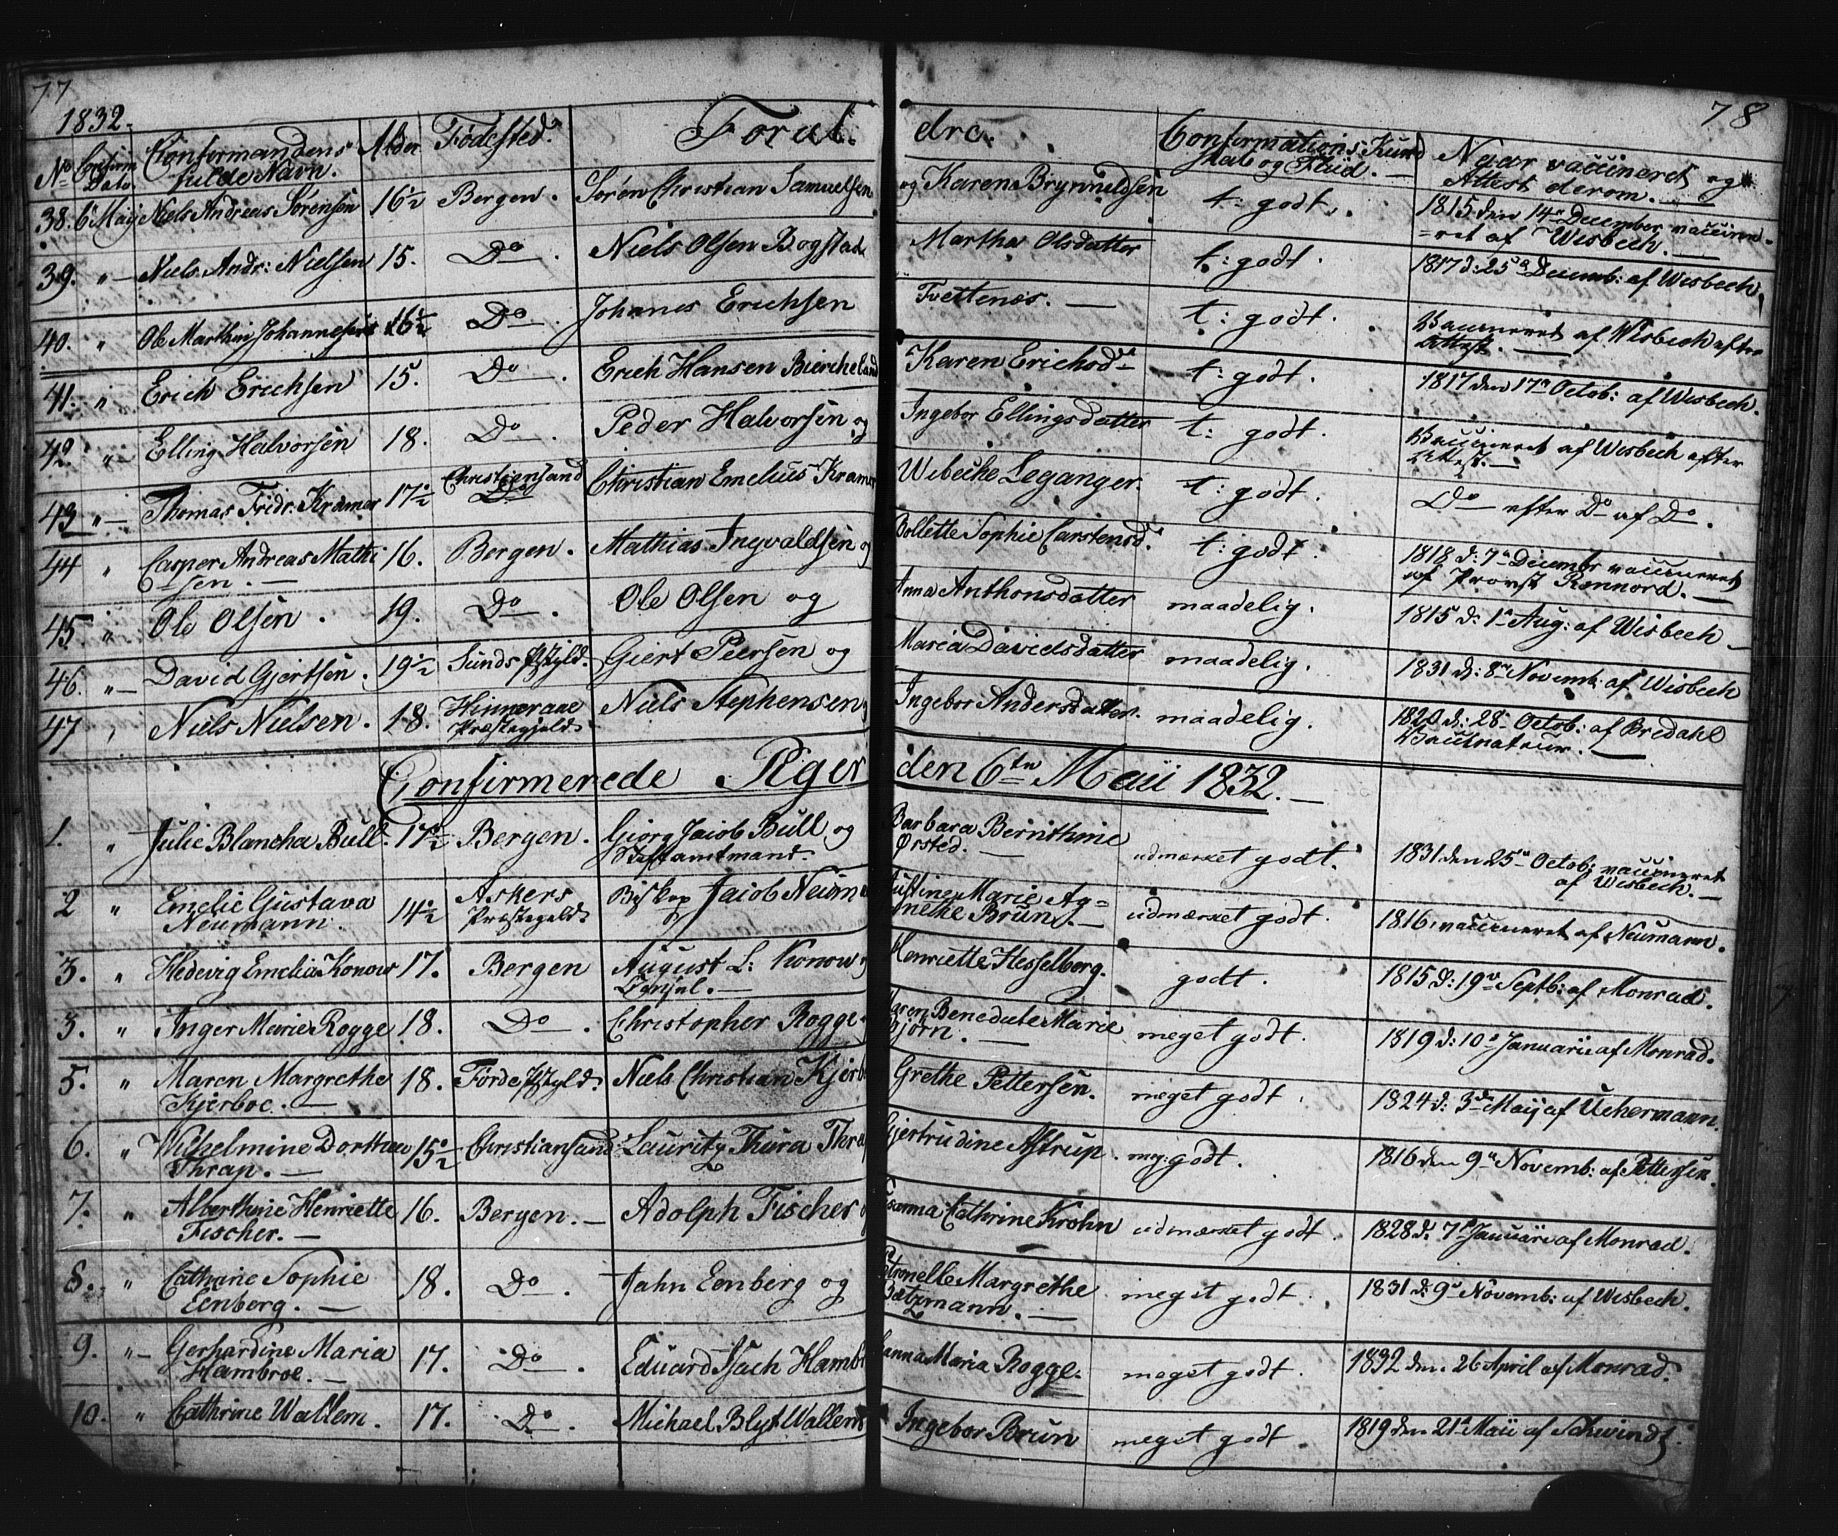 77
78
1832.
No Confirm Dato Confirmandens fulde Navn. Alder Fødested. Foræl- dre. Confirmations: Kundskab og Flid. Naar vaccineret og Attest derom.
38. 6 Maij Niels Andreas Sørensen 16½ Bergen. Søren Christian Samuelsen og Karen Brynnildsen t: godt. 1815 den 14de December vaccine-
ret af Wisbech.
39. " Niels Andr: Nielsen 15. Do. Niels Olsen Bogstad Martha Olsdatter t: godt. 1817 d: 25de Decemb: af Wisbech.
40. " Ole Marthin Johannesen 16½ Do. Johanes Erichsen Tvettenæs. t: godt. Vaccineret af Wisbech efter
Attest.
41. " Erich Erichsen 15. Do. Erich Hansen Biercheland Karen Erichsd. t: godt. 1817 den 17de Octob: af Wisbech.
42. " Elling Halvorsen 18. Do. Peder Halvorsen og Ingebor Ellingsdatter t: godt. Vaccineret af Wisbech efter
Attest.
43 " Thomas Fridr. Kramer 17½ Christiensand Christian Emelius Kramer Wibecke Leganger. t: godt. Do efter Do af Do.
44 " Casper Andreas Mathi 16. Bergen. Mathias Ingvaldsen og Bollette Sophie Carstensd. t: godt. 1818 d: 7de Decembr vaccineret
sen. af Provst Rennord.
45 " Ole Olsen. 19. Do. Ole Olsen og Anna Anthonsdatter maadelig. 1815 d: 1te Aug: af Wisbech
46. " David Gjertsen. 19½ Sunds Pstgjld. Giert Peersen og Maria Davidsdatter maadelig. 1831 d: 8de Novemb: af Wisbech
47 " Niels Nielsen. 18. Hinneraae Niels Stephensen Ingebor Andersdatter. maadelig. 1820 d: 28 Octob: af Bredahl
Præstegjeld. Vaccinateur.
Confirmerede Piger den 6te Maii 1832.
1. " Julie Blancha Bull. 17½ Bergen. Giørg Jacob Bull og Barbara Bernthine udmærket godt. 1831 den 25de Octob: vaccineret
Stiftamtmand. Ørsted. af Wisbech.
2 " Emelie Gustava 14½ Askers Biskop Jacob Neuma Justine Marie Ag= udmærket godt. 1816, vaccineret af Neumann.
Neumann. Præstegeld. nethe Brun.
3. " Hedevig Emelia Konow 17. Bergen August L: Konow Henriette Hesselberg. godt. 1815 d: 19de Septb: af Monrad.
Consul.
3. " Inger Marie Rogge 18. Do. Christopher Rogge Maren Benedicte Marie meget godt. 1819 d: 10de Januarii af Monrad.
Bjørn.
5. " Maren Margrethe 18. Førde Pstgjld. Niels Christian Kjerb Grethe Pettersen. meget godt. 1824 d: 3de Maij af Uchermann.
Kjerboe.
6. " Wilhelmine Dorthea 15½ Christiansand Lauritz Thura Thrap Gjertrudine Astrup. meg: godt. 1816 den 9de Novemb: af Pettersen.
Thrap.
7. " Alberthine Henriette 16. Bergen. Adolph Fischer Susanna Cathrine Krohn udmærket godt. 1828 d. 7de Januarii af Monrad.
Fischer.
8. " Cathrine Sophie 18. Do. Jahn Eenberg og Petronelle Margrethe meget godt. 1831 d: 9de Novemb: af Wisbech.
Eenberg. Bætzmann.
9. " Gerhardine Maria 17. Do. Eduard Isach Hambr Hanna Maria Rogge. meget godt. 1832 den 26 April af Monrad.
Hambroe.
10. " Cathrine Wallem. 17. Do. Michael Blyt Wallem Ingebor Brun meget godt. 1819 den 21de Maii af Schwindt.